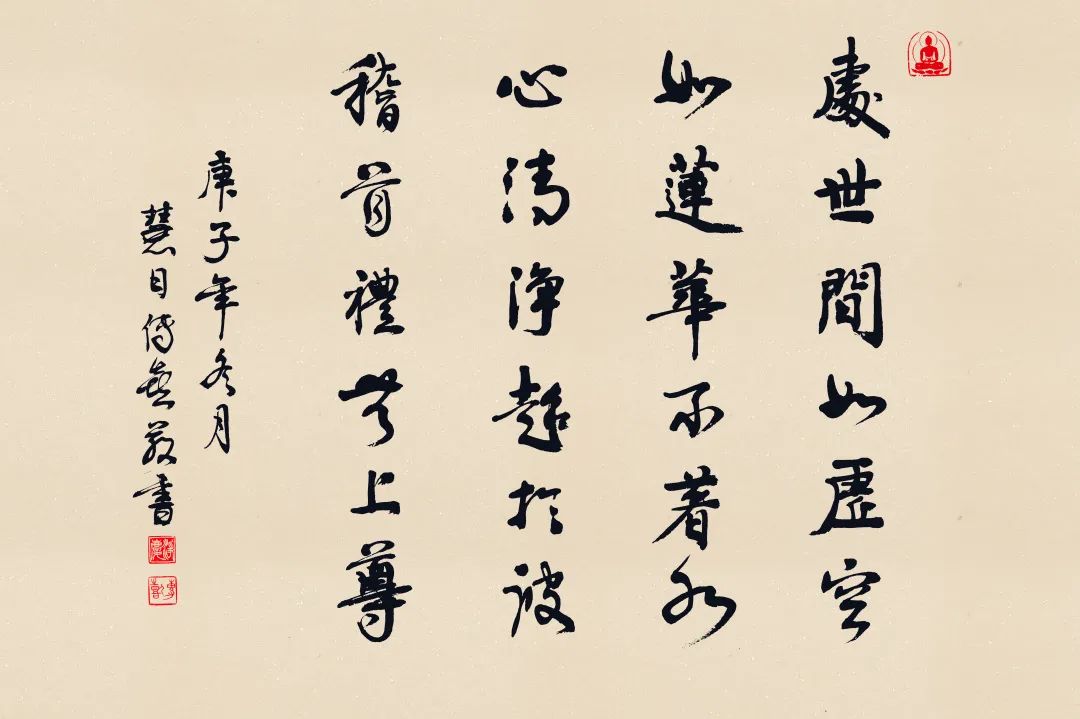 處世間如虛空
如蓮華不著水
心清淨超於彼
稽首禮無上尊
庚子年冬月
慧日傳喜敬書
傳喜